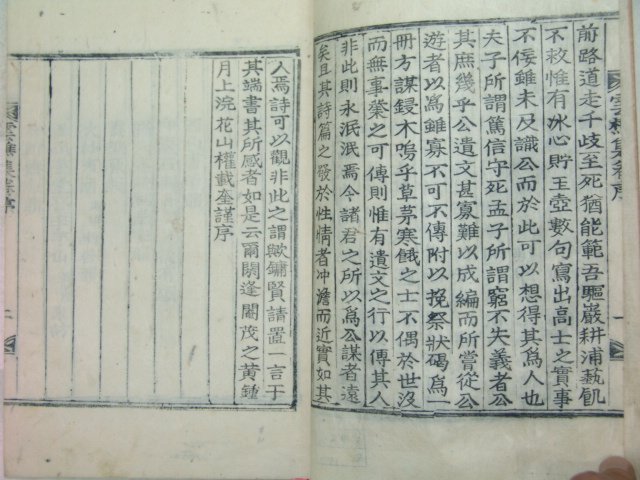 前路道走千歧至死猶能範吾驅巖耕浦藝飢
不救惟有冰心貯玉壺數句寫出高士之實事
不佞雖未及識公而於此可以想得其爲人也
夫子所謂篤信守死孟子所謂窮不失義者公
其庶幾乎公遺文甚寡難以成編而所嘗從公
遊者以爲雖寡不可不傳附以挽祭狀碣爲一
冊方謀鋟木嗚乎草茅寒餓之士不偶於世沒
而無事蘂之可傳則惟有遺文之行以傳其人
非此則永泯泯焉今諸君之所以爲公謀者遠
矣且其詩篇之發於性情者冲澹而近實如其
人焉詩可以觀非此之謂歟鏞賢請置一言于
其端書其所感者如是云爾閼逢閹茂之黄鍾
月上浣花山權載奎謹序